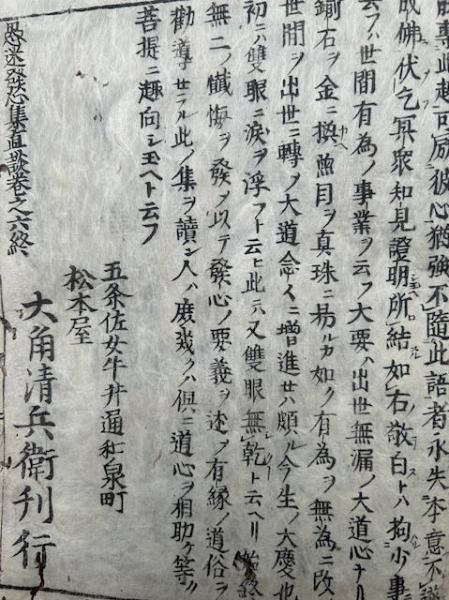 可励彼心猶強不隨此語者永失本意不
成佛伏乞冥衆知見證明所結如右敬白トハ拘少事
云フハ世間有為ノ事業ヲ云フ大要ハ出世無漏ノ大道心ナリ
鍮石ヲ金ニ換魚目ヲ真珠ニ易ルカ如ク有為ヲ無為ニ改
世間ヲ出世ニ轉ノ大道念々ニ增進セハ頗ル今生ノ大慶也
初ニハ雙眼ニ淚ヲ浮フト云ヒ此ニハ又雙眼無乾ト云ヘリ始終
無二ノ懺悔ヲ發ノ以テ發心ノ要義ヲ述ヲ有縁ノ道俗ヲ
勸導セラル此ノ集ヲ讀ン人ハ庶幾クハ俱ニ道心ヲ相助ケ等ク
菩提ニ趣向シ玉ヘト云フ
愚迷發心集直談卷之六終
五条佐女牛井通和泉町
松本屋
大角清兵衛刊行